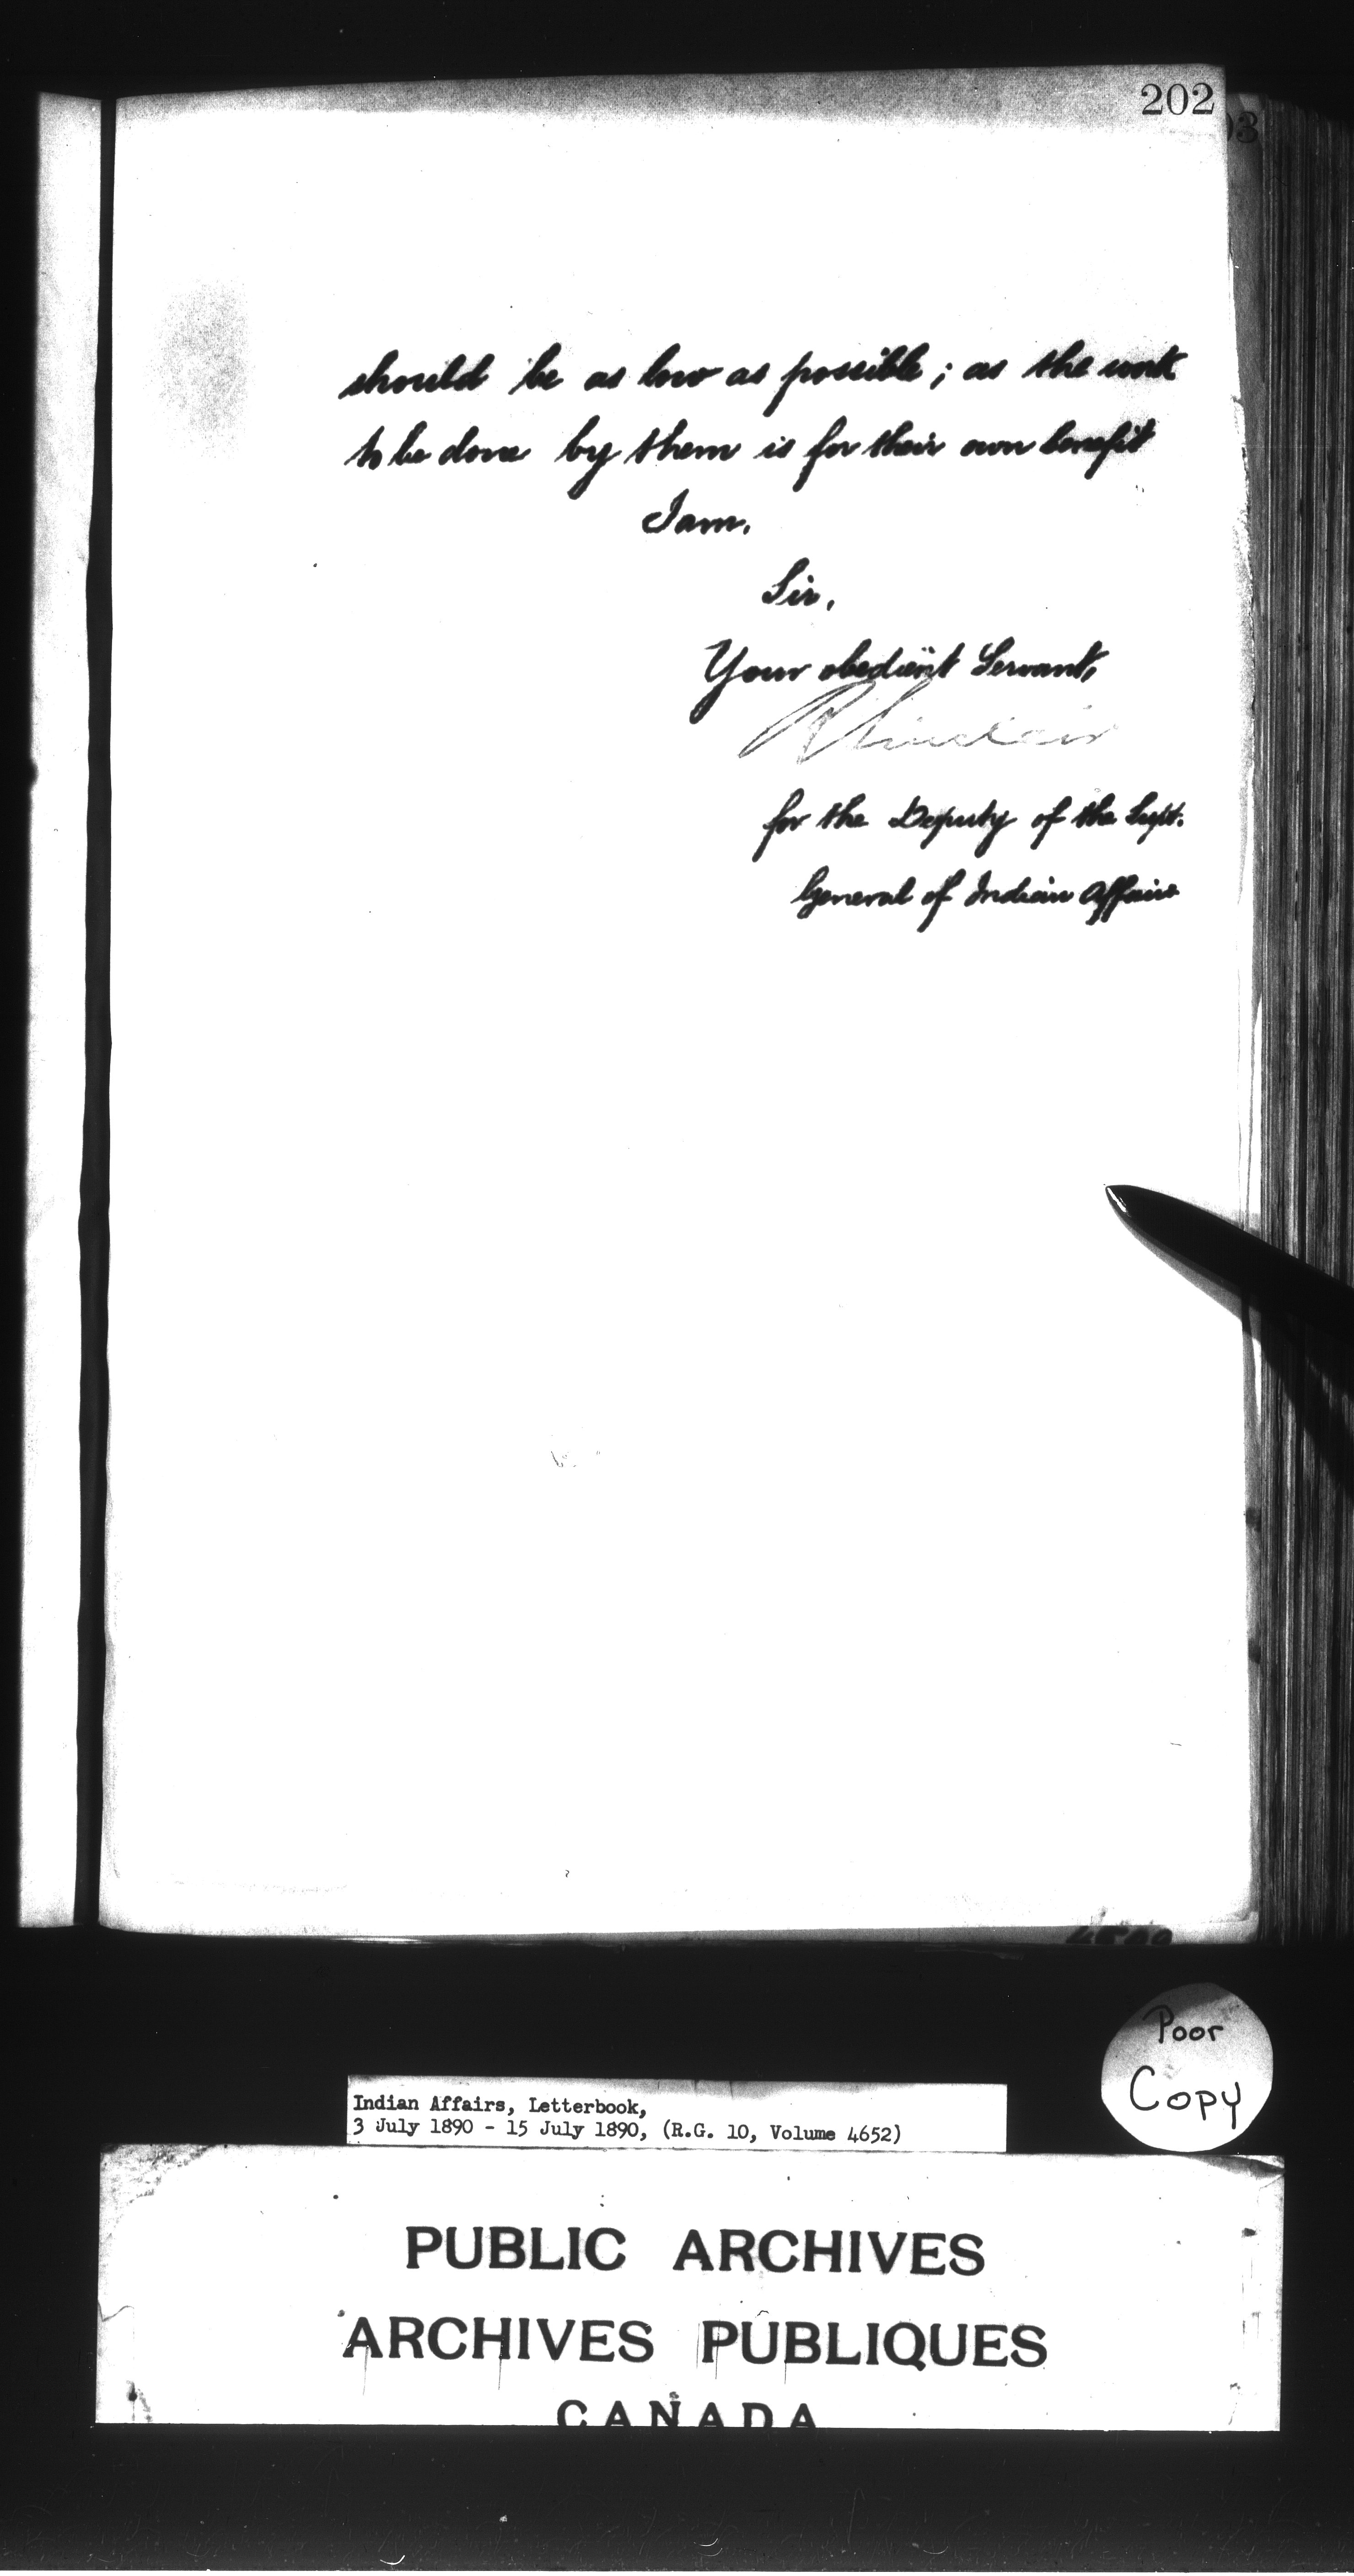 202
should be as low as possible; as the work
to be done by them is for their own benefit
I am,
Sir,
Your obedient Servant,
R Sinclair
for the Deputy of the Supt.
General of Indian Affairs
Poor
Copy
Indian Affairs, Letterbook,
3 July 1890 - 15 July 1890, (R.G. 10, Volume 4652)
PUBLIC ARCHIVES
ARCHIVES PUBLIQUES
CANADA